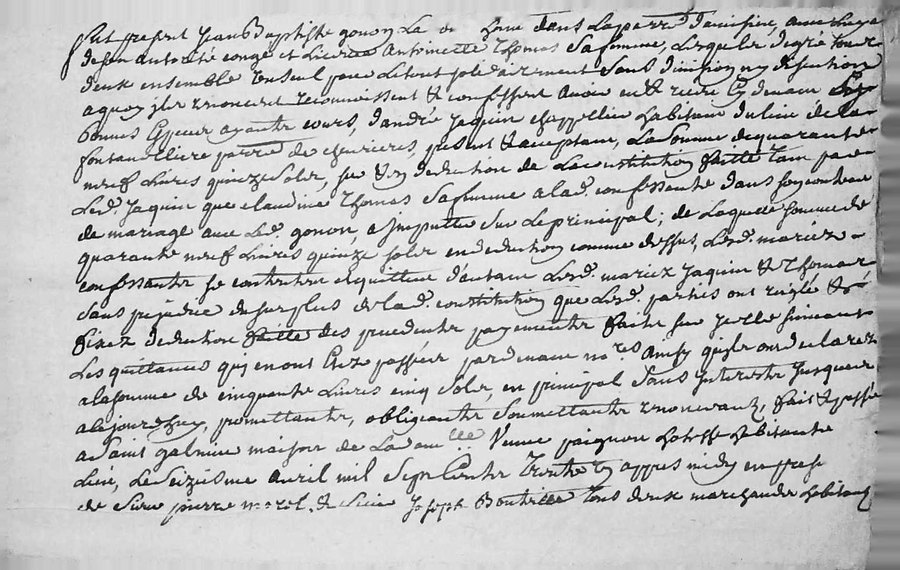 fut present Jean Baptiste gonon La de dans La parre d'aveisieu,
de son autorité congé et Licence Antoinette Thomas Sa femme, Lesquels de gré tous
deux ensemble un seul pour Le tout solidairement sans division ny discution
a quoy ils renoncent reconnoissent & confessent avoir eu & receu Cy devant
bonnes Espèces ayants cours, d'andré Jaquin chappellier habitant du lieu de la
fontanelliere parre de chevrieres, present & acceptant, La somme de quarante
neuf Livres quinze sols, sur & en deduction de La constitution faitte tant par
Led. Jaquin que claudine Thomas Sa femme a lad. confessante dans son contract
de mariage avec Led. gonon, a imputter Sur Le principal; de Laquelle somme de
quarante neuf Livres quinze sols en deduction comme dessus, Lesd. mariez
confessants se contentent et quittent d'autant Lesd. mariez Jaquin & Thomas
Sans prejudice du surplus de Lad. constitution que Lesd. parties ont reiglé &
fixez deduction faitte des precedents payements faits sur jcelle suivant
Les quittances qui en ont Esté passées pardevant no.res Ainsy qu'ils ont declarez
a la somme de cinquante Livres cinq sols, en principal Sans Interests Jusques
a ce jourd'huy, promettants, obligeants Soumettants renonceants, fait & passé
a Saint galmier maison de La dam.lle Veuve paignon hotesse habitante
Lieu, Le Seizieme Avril mil Sept Cents Trente appres midy en presce
de Sieur pierre morel & Sieur Joseph Boutville Tous deux marchands habitants